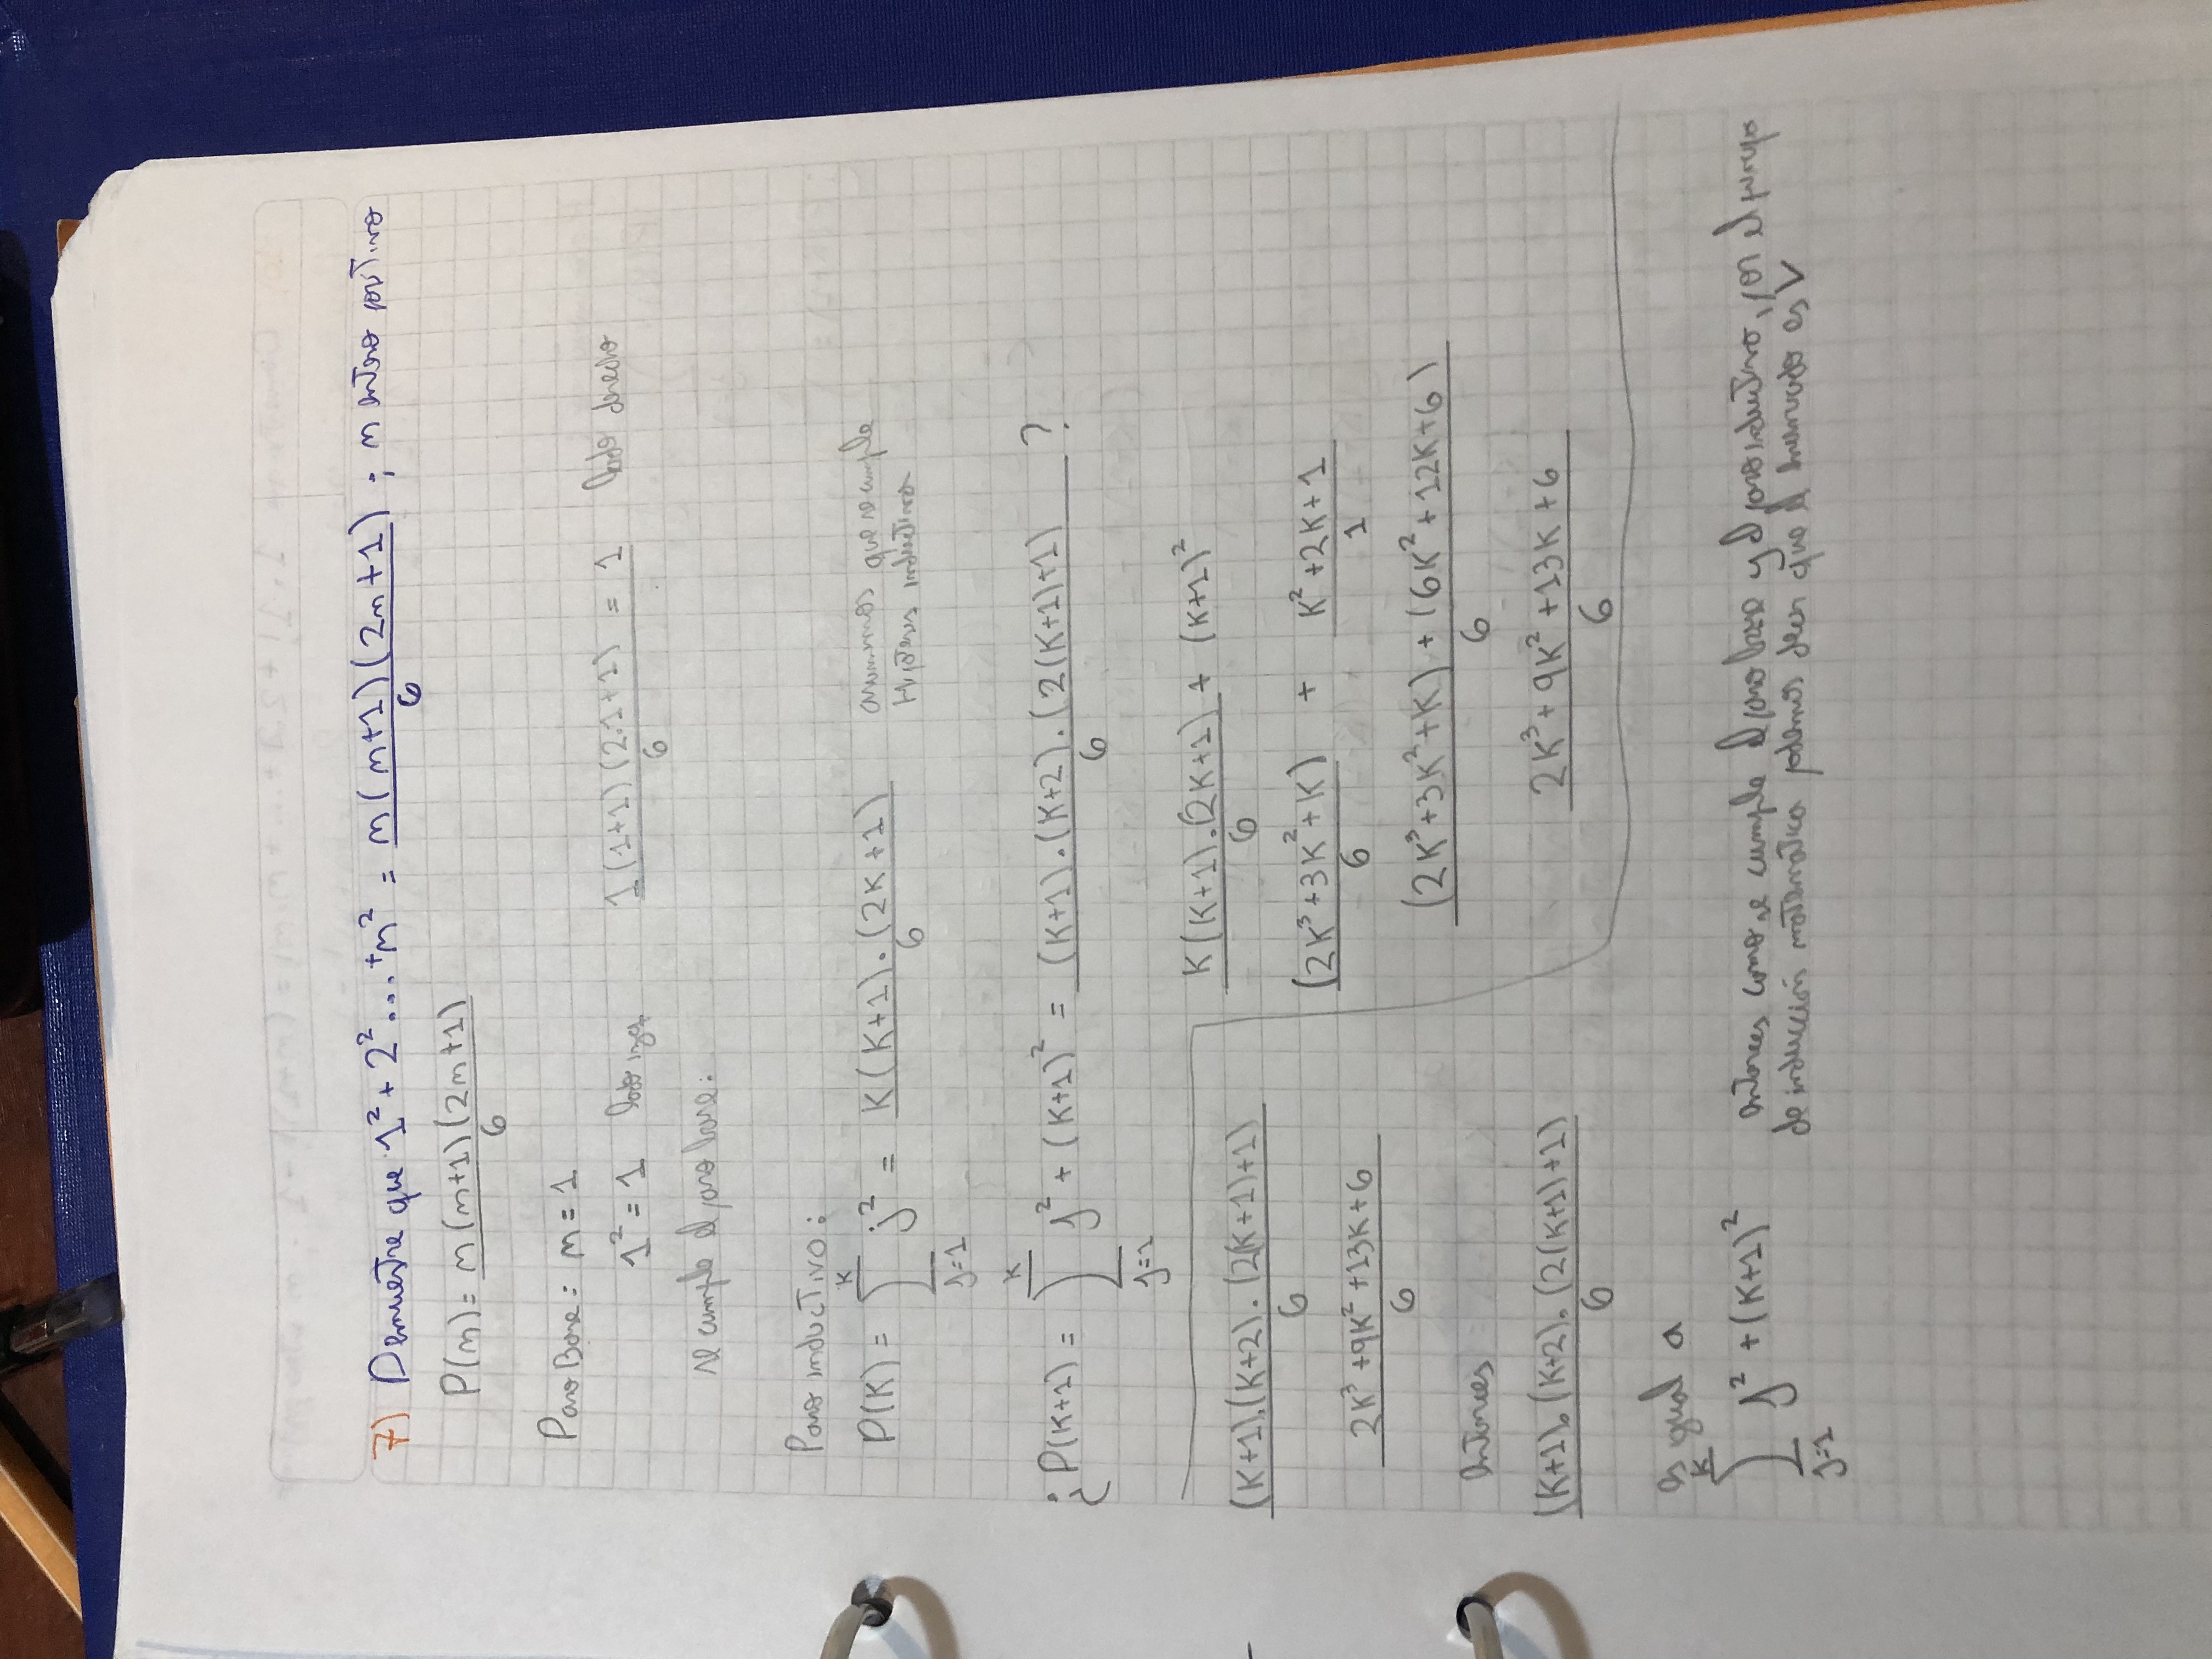 7) Demuestre que 1² + 2² ... + n² = n(n+1)(2n+1)/6 ; n entero positivo
P(n) = n(n+1)(2n+1)/6
Paso Base: n = 1
1² = 1 lado izq 1(1+1)(2.1+1)/6 = 1 lado derecho
se cumple el paso base:
Paso inductivo:
P(K) = ∑_{j=1}^{K} j² = K(K+1).(2K+1)/6 asumimos que se cumple
Hipótesis inductiva
¿P(K+1) = ∑_{j=1}^{K} j² + (K+1)² = (K+1).(K+2).(2(K+1)+1)/6 ?
(K+1).(K+2).(2(K+1)+1)/6
2K³+9K²+13K+6/6
entonces
(K+1).(K+2).(2(K+1)+1)/6
es igual a
∑_{j=1}^{K} j² + (K+1)²
K(K+1).(2K+1)/6 + (K+1)²
(2K³+3K²+K)/6 + K²+2K+1/1
(2K³+3K²+K) + (6K²+12K+6)/6
2K³+9K²+13K+6/6
entonces como se cumple el paso base y el paso inductivo, por el
de inducción matemática podemos decir que el enunciado es V